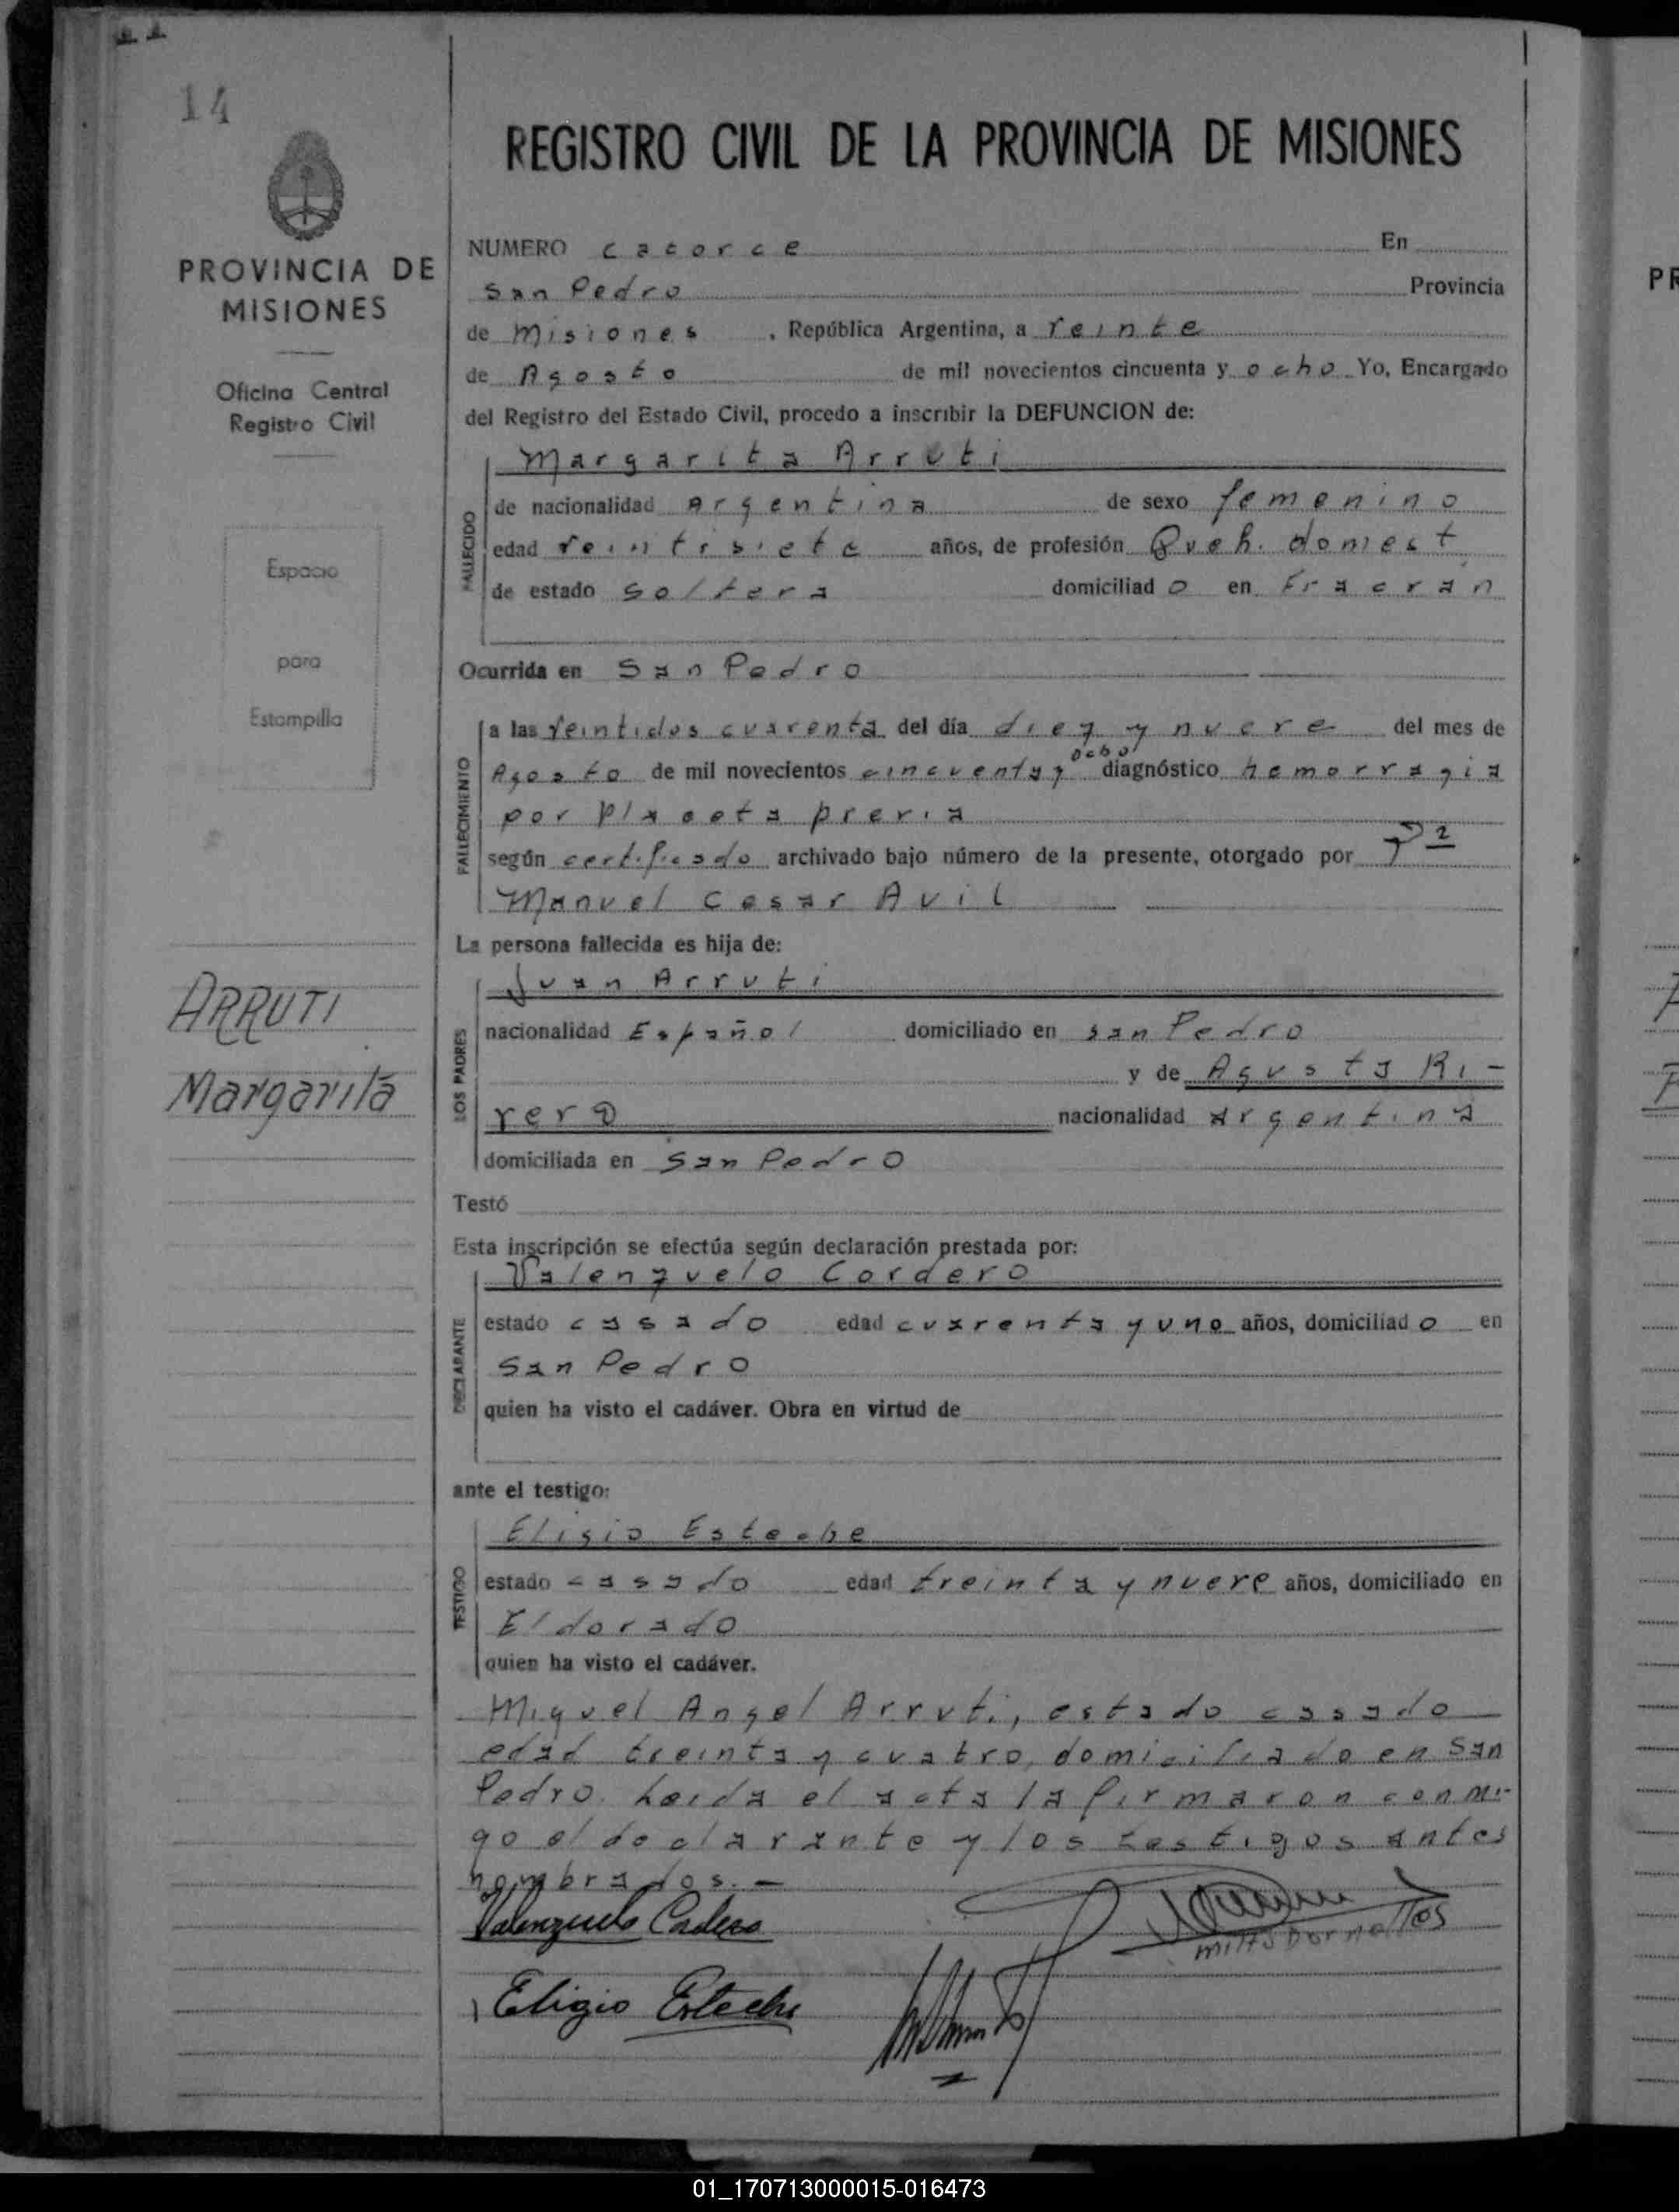 14
PROVINCIA DE
MISIONES
Oficina Central
Registro Civil
Espacio
para
Estampilla
ARRUTI
Margarita
REGISTRO CIVIL DE LA PROVINCIA DE MISIONES
NUMERO catorce En
San Pedro Provincia
de Misiones, República Argentina, a veinte
de Agosto de mil novecientos cincuenta y ocho Yo, Encargado
del Registro del Estado Civil, procedo a inscribir la DEFUNCION de:
Margarita Arruti
FALLECIDO
de nacionalidad Argentina de sexo femenino
edad veintisiete años, de profesión Queh. domest
de estado soltera domiciliado en Fracrán
Ocurrida en San Pedro
FALLECIMIENTO
a las veintidos cuarenta del día diez y nueve del mes de
Agosto de mil novecientos cincuenta y ocho diagnóstico hemorragia
por placeta previa
según certificado archivado bajo número de la presente, otorgado por
Manuel Cesar Avil
La persona fallecida es hija de:
LOS PADRES
Juan Arruti
nacionalidad Español domiciliado en San Pedro
y de Agusta Ri-
vero nacionalidad argentina
domiciliada en San Pedro
Testó
Esta inscripción se efectúa según declaración prestada por:
DECLARANTE
Valenzuelo Cordero
estado casado edad cuarenta y uno años, domiciliado en
San Pedro
quien ha visto el cadáver. Obra en virtud de
ante el testigo:
TESTIGO
Eligio Esteche
estado casado edad treinta y nueve años, domiciliado en
Eldorado
quien ha visto el cadáver.
Miguel Angel Arruti, estado casado
edad treinta y cuatro, domiciliado en San
Pedro. Leida el acta la firmaron conmi-
go el declarante y los testigos antes
nombrados.-
Valenzuelo Cordero
Eligio Esteche
PR
01_170713000015-016473